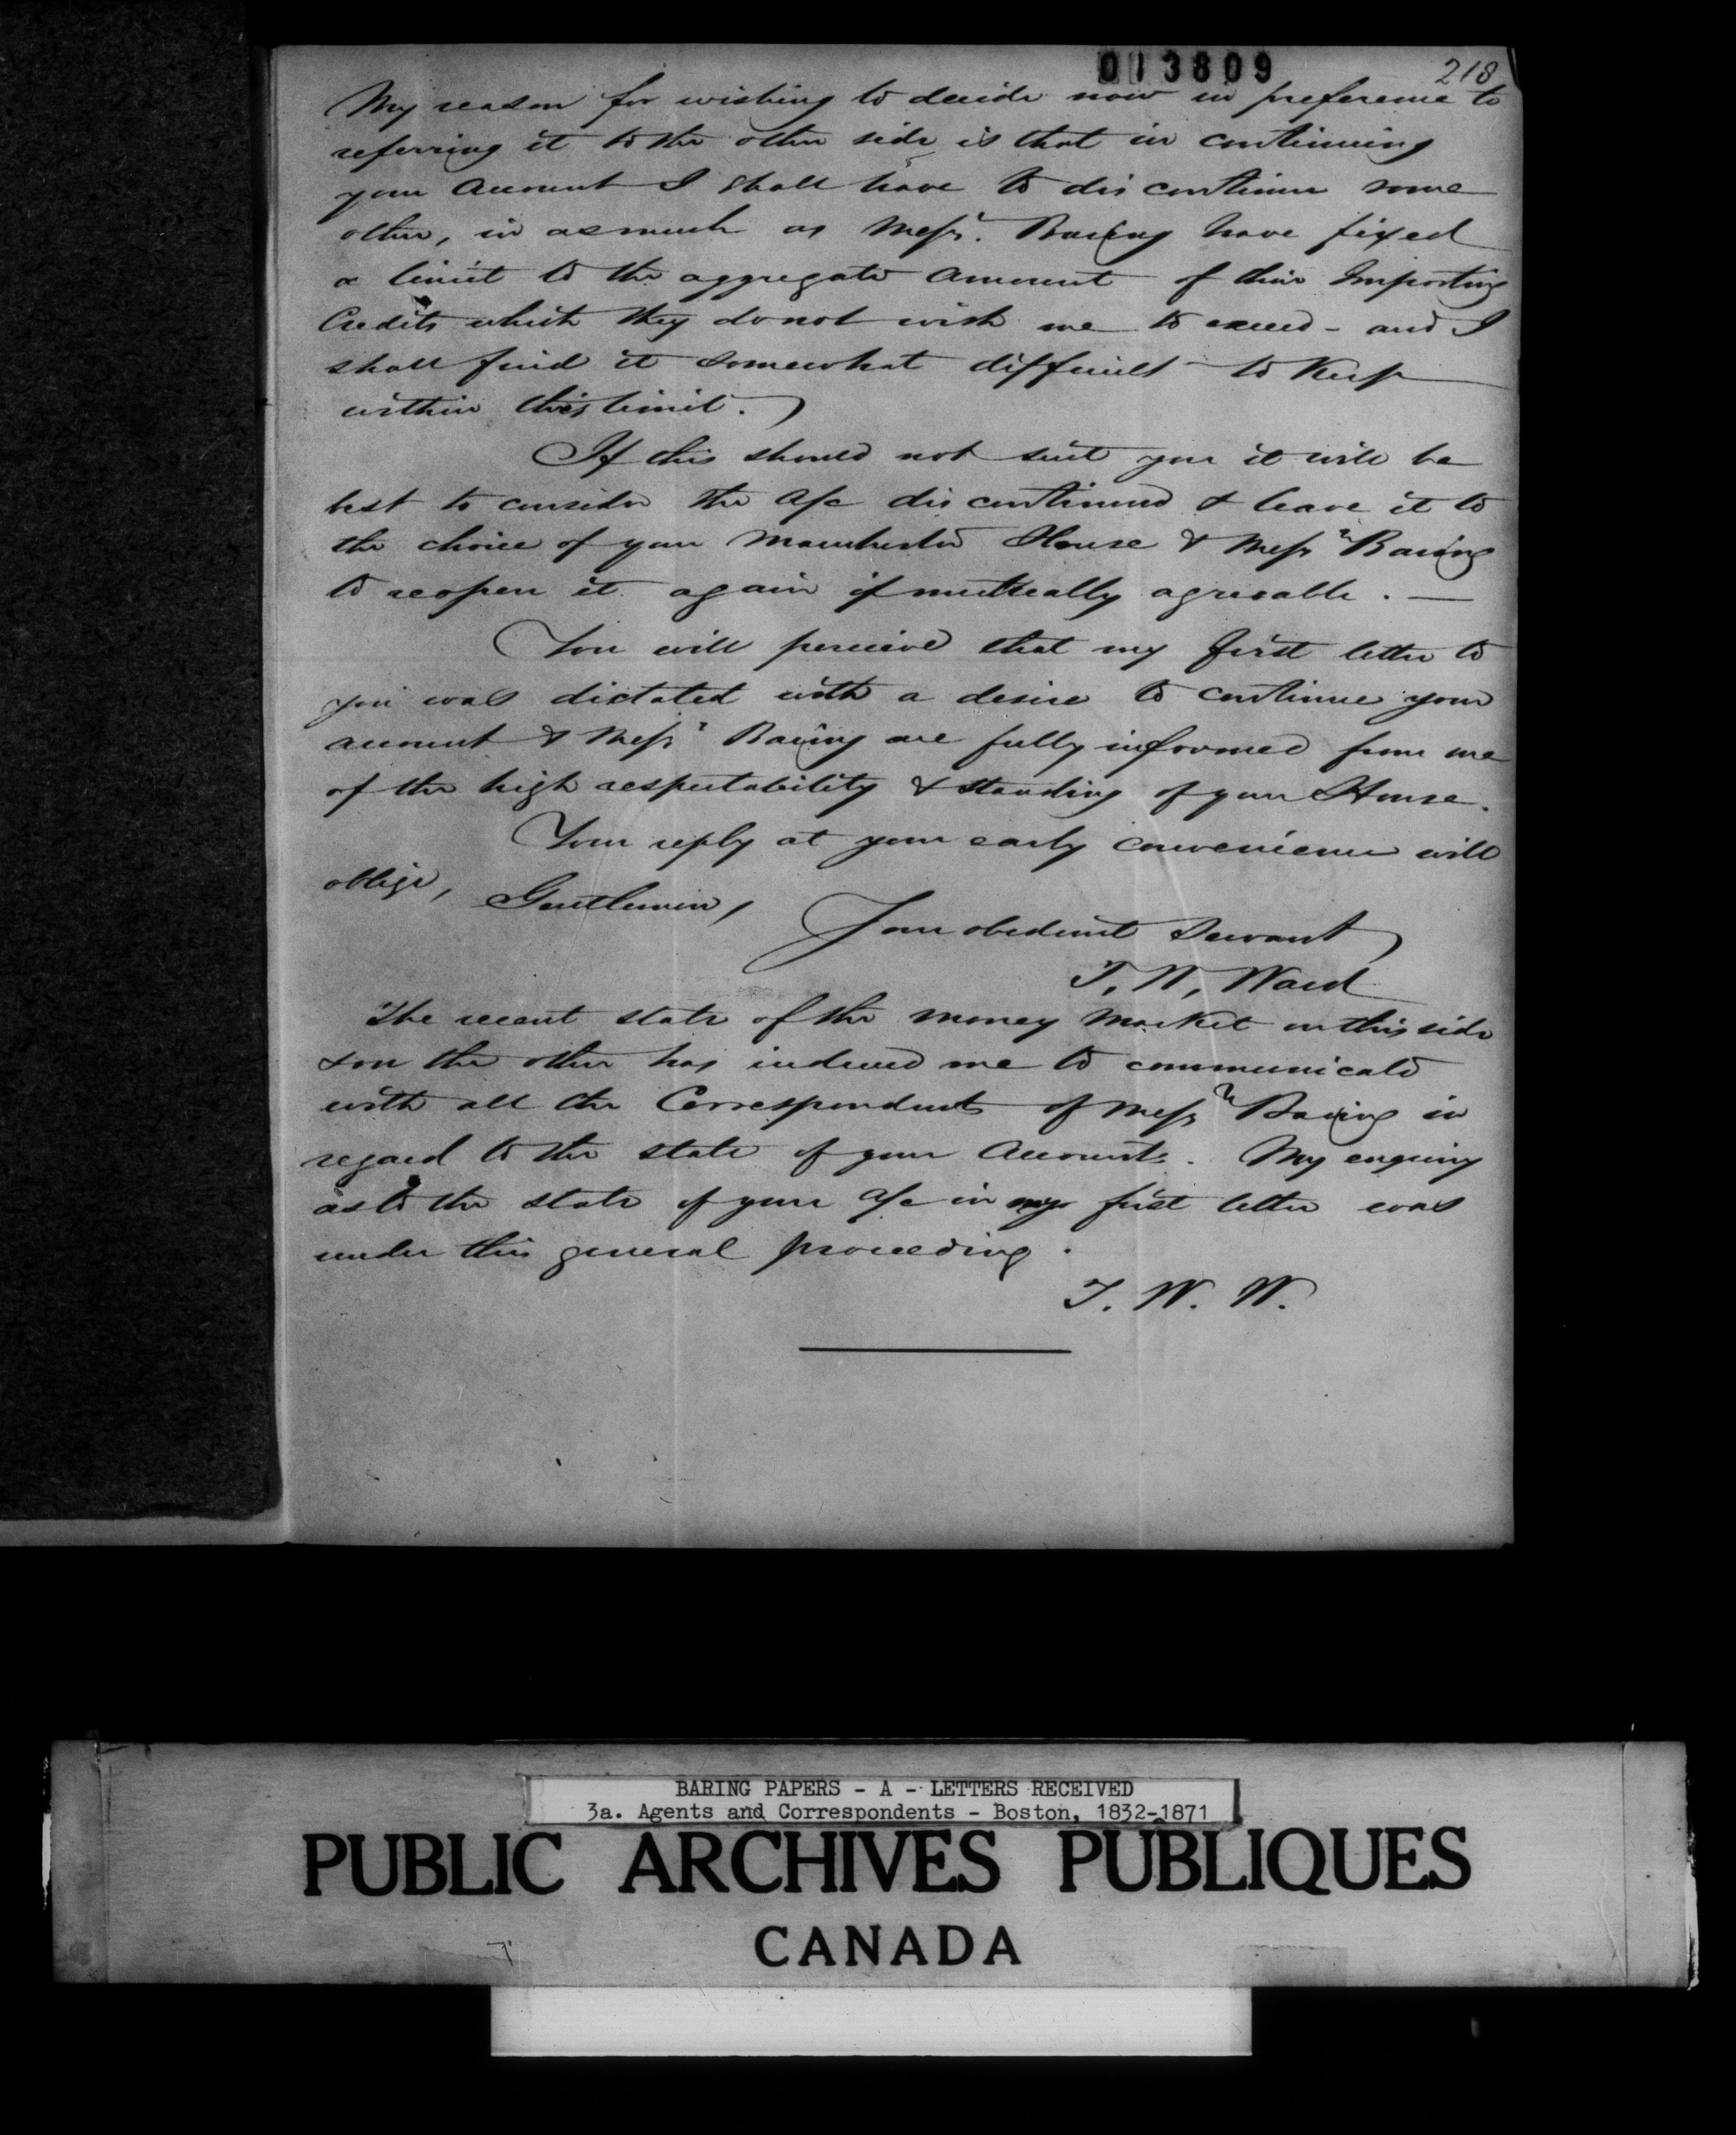 013809
218
My reason for wishing to decide now in preference to
referring it to the other side is that in continuing
your account I shall have to discontinue some
other, in asmuch as Messrs. Baring have fixed
a limit to the aggregate amount of their Importing
Credits which they do not wish me to exceed - and I
shall find it somewhat difficult to keep
within this limit.
If this should not suit you it will be
best to consider the a/c discontinued & leave it to
the choice of your Manchester House & Messrs Baring
to reopen it again if mutually agreeable. —
You will perceive that my first letter to
you was dictated with a desire to continue your
account & Messrs Baring are fully informed from me
of the high respectability & standing of your House.
Your reply at your early convenience will
oblige, Gentlemen,
Your obedient Servant
T. W. Ward
The recent state of the money market on this side
& on the other has induced me to communicate
with all the Correspondents of Messrs Baring in
regard to the state of your Accounts. My enquiry
as to the state of your a/c in my first letter was
under this general proceeding.
T. W. W.
BARING PAPERS - A - LETTERS RECEIVED
3a. Agents and Correspondents - Boston, 1832-1871
PUBLIC ARCHIVES PUBLIQUES
CANADA